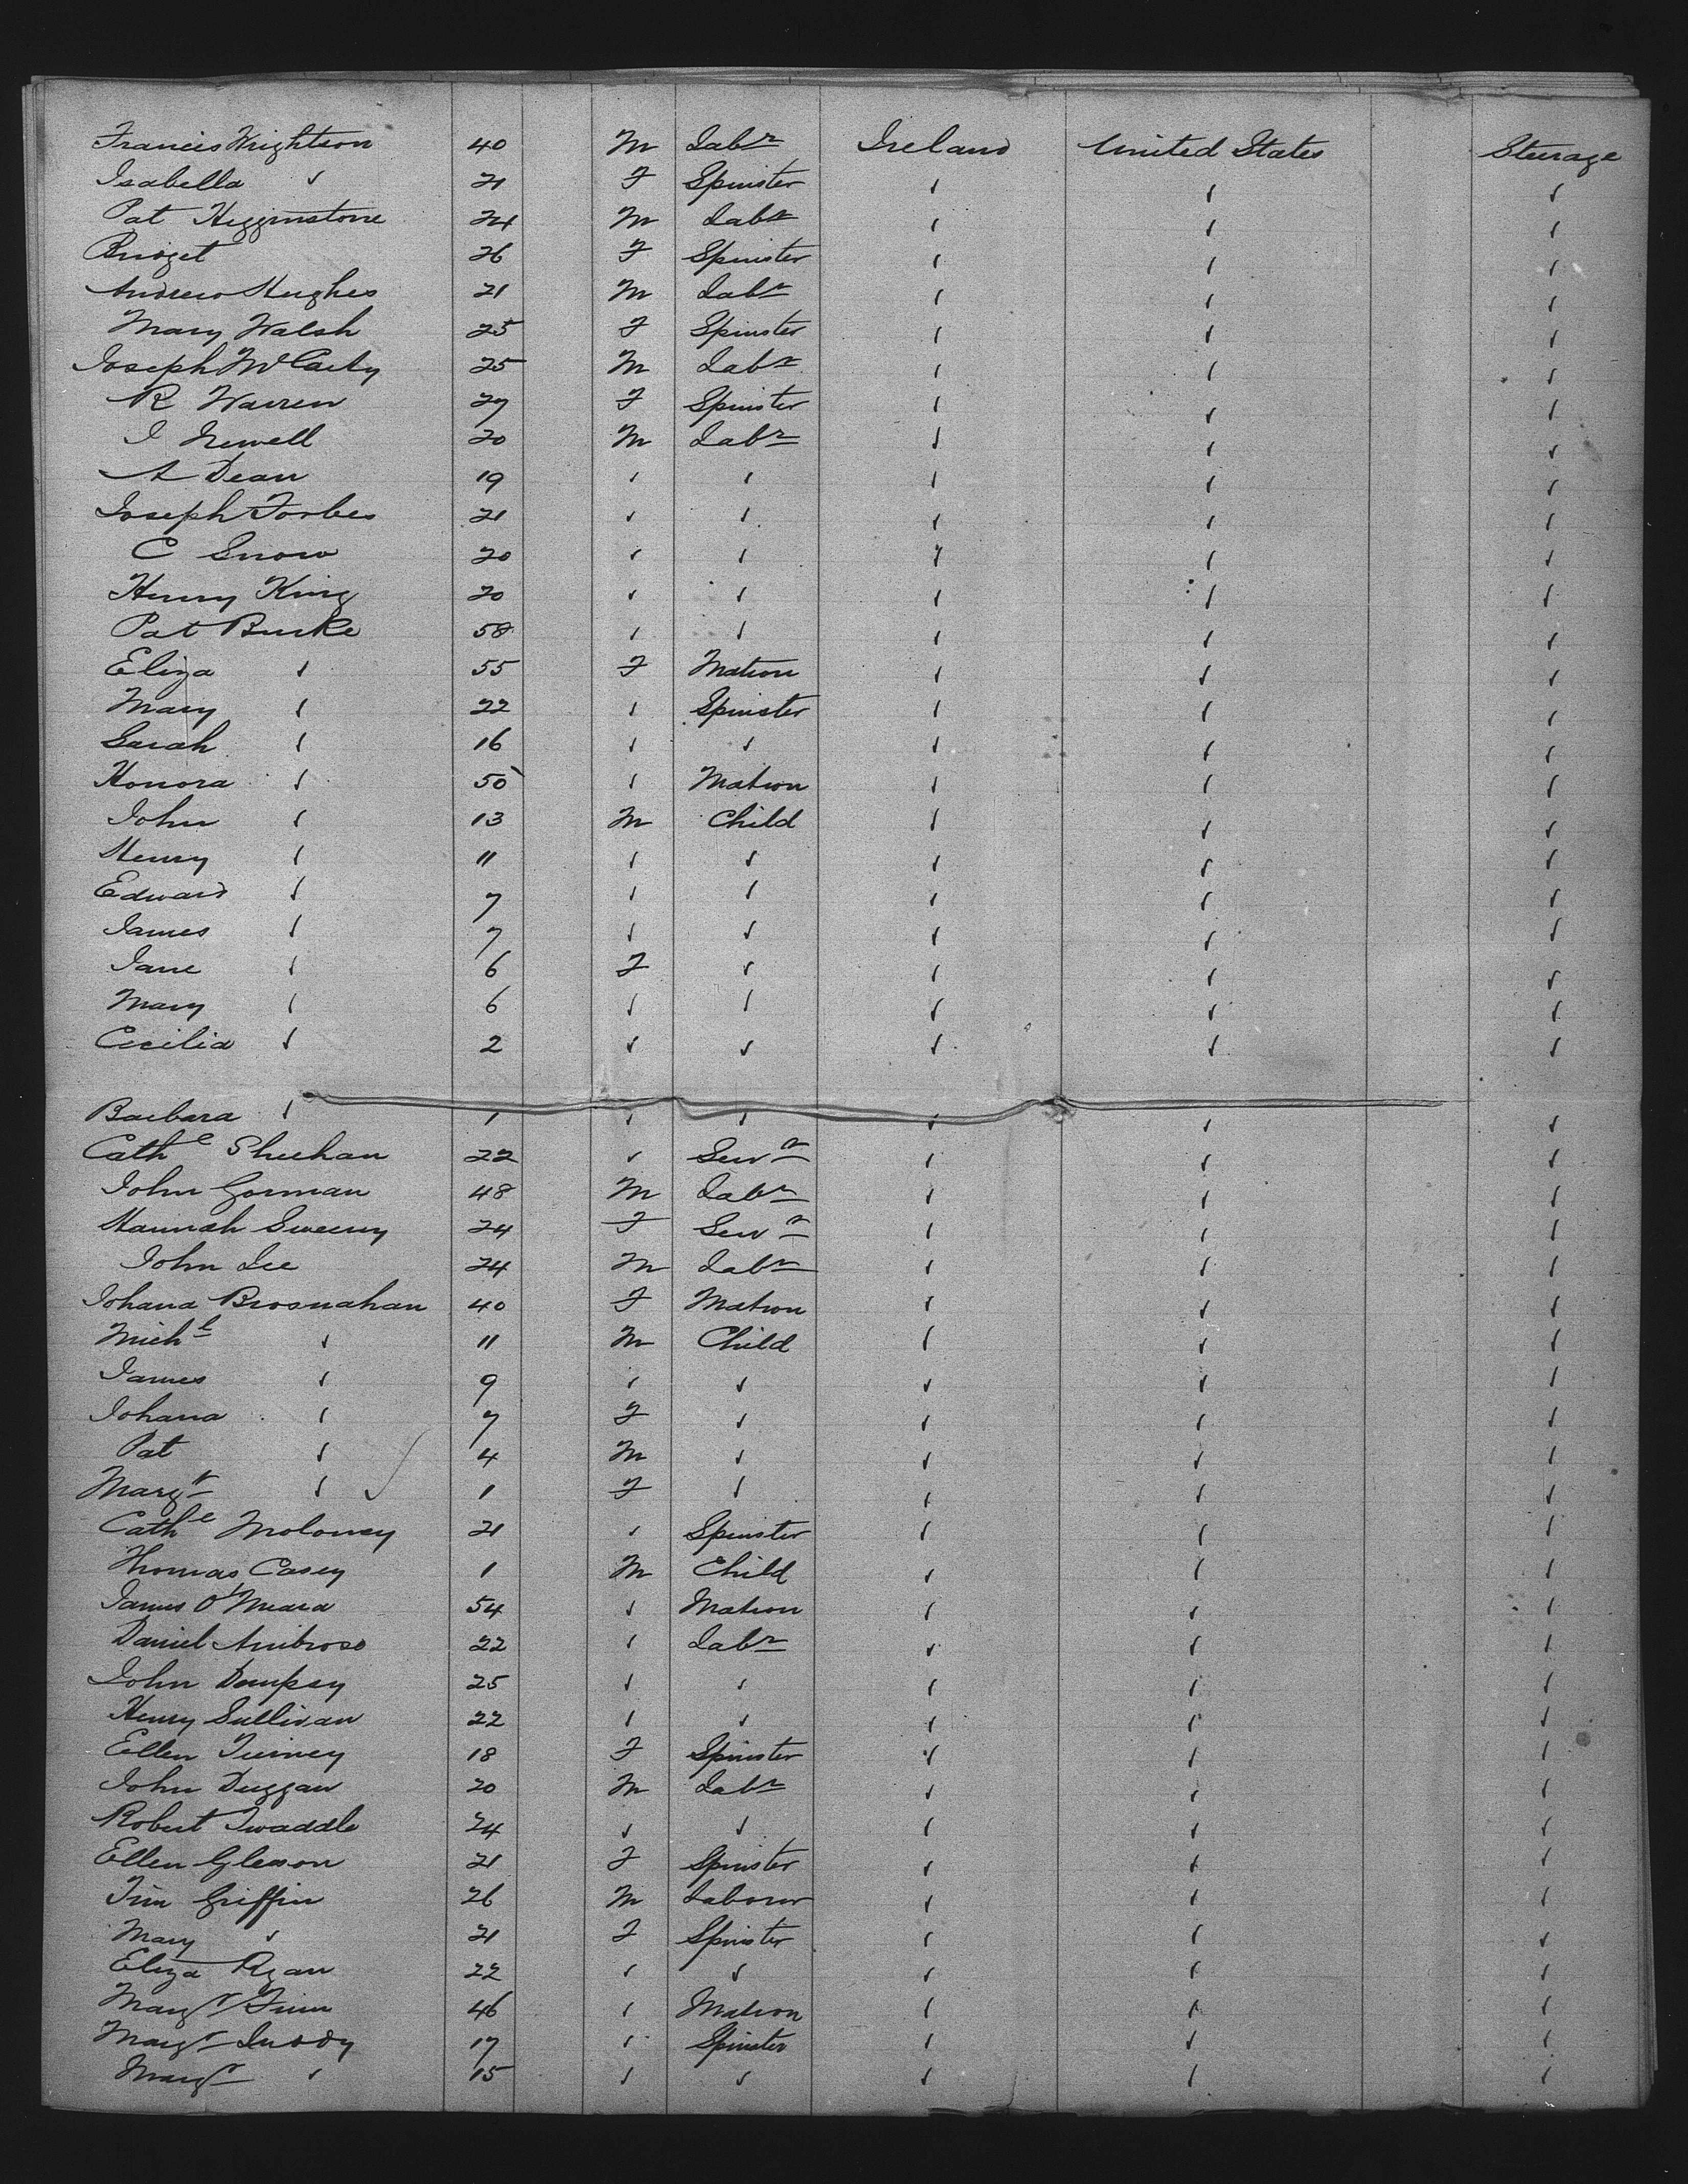 Francis Wrightson 40 M Labr Ireland United States Steerage
Isabella " 21 F Spinster " " "
Pat Higginstone 24 M Labr " " "
Bridget 26 F Spinster " " "
Andrew Hughes 21 M Labr " " "
Mary Walsh 25 F Spinster " " "
Joseph McCarty 25 M Labr " " "
R Warren 27 F Spinster " " "
J Newell 20 M Labr " " "
A Dean 19 " " " " "
Joseph Forbes 21 " " " " "
C Snow 20 " " " " "
Henry King 20 " " " " "
Pat Burke 58 " " " " "
Eliza " 55 F Matron " " "
Mary " 22 " Spinster " " "
Sarah " 16 " " " " "
Honora " 50 " Matron " " "
John " 13 M Child " " "
Henry " 11 " " " " "
Edward " 7 " " " " "
James " 7 " " " " "
Jane " 6 F " " " "
Mary " 6 " " " " "
Cecilia " 2 " " " " "
Barbara " 1 " " " " "
Cathe Sheehan 22 " Servt " " "
John Gorman 48 M Labr " " "
Hannah Sweeny 24 F Servt " " "
John Lee 24 M Labr " " "
Johana Brosnahan 40 F Matron " " "
Michl " 11 M Child " " "
James " 9 " " " " "
Johana " 7 F " " " "
Pat " 4 M " " " "
Margt " 1 F " " " "
Cathe Moloney 21 " Spinster " " "
Thomas Casey 1 M Child " " "
James O'Meara 54 " Matron " " "
Daniel Ambrose 22 " Labr " " "
John Dempsey 25 " " " " "
Henry Sullivan 22 " " " " "
Ellen Tierney 18 F Spinster " " "
John Duggan 20 M Labr " " "
Robert Twaddle 24 " " " " "
Ellen Gleeson 21 F Spinster " " "
Tim Griffin 26 M Laborer " " "
Mary " 21 F Spinster " " "
Eliza Ryan 22 " " " " "
Margt Finn 46 " Matron " " "
Margt 17 " Spinster " " "
Margt " 15 " " " " "